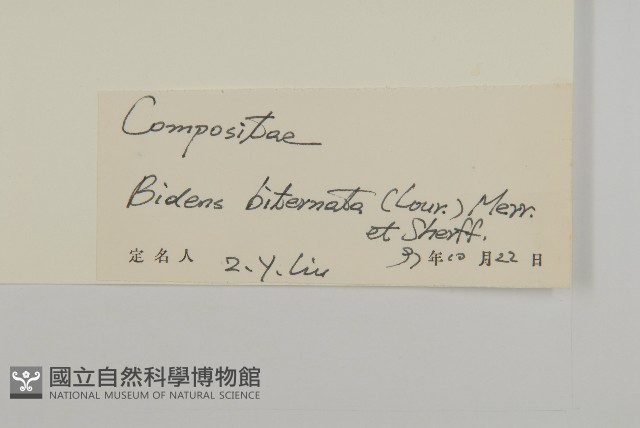 Compositae
Bidens biternata (Lour.) Merr.
et Sherff.
定名人 Z.Y. Liu 年10月22日
國立自然科學博物館
NATIONAL MUSEUM OF NATURAL SCIENCE